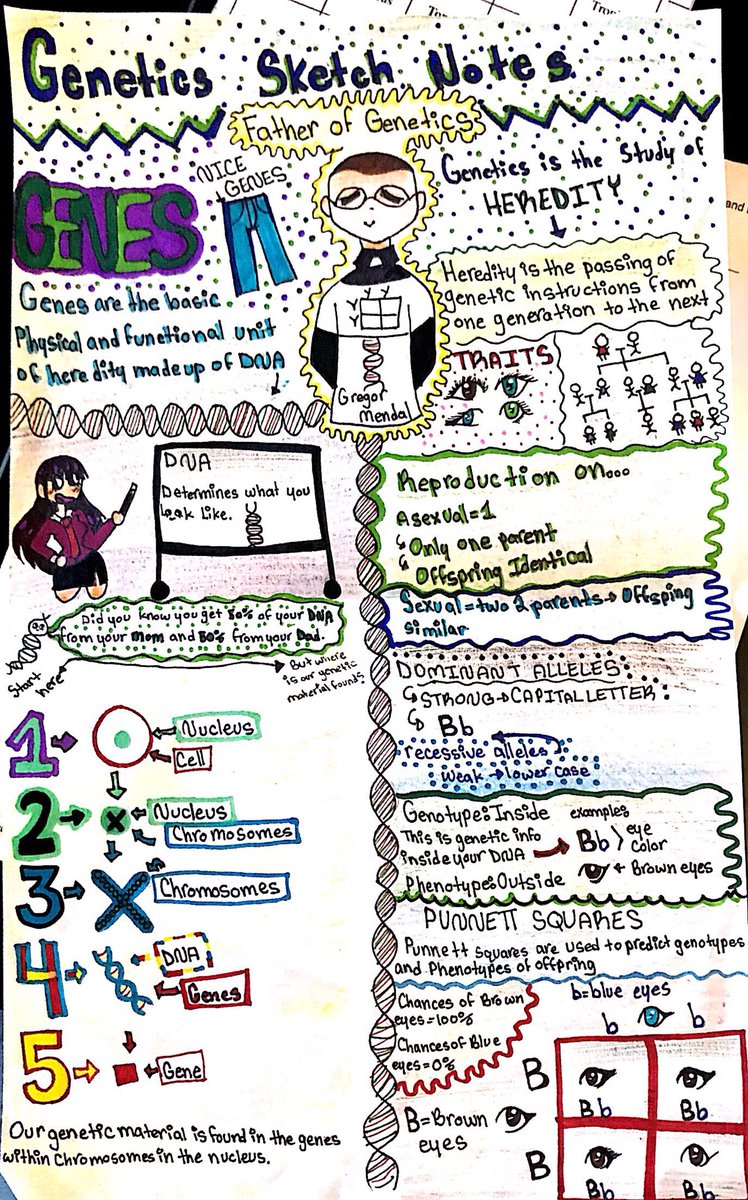 Genetics Sketch Notes
Father of Genetics
GENES
NICE
GENES
Genes are the basic
Physical and functional unit
of heredity made up of DNA
Y Y
Y
Y
Gregor
Mendal
Genetics is the Study of
HEREDITY
Heredity is the passing of
genetic instructions from
one generation to the next
TRAITS
DNA
Determines what you
look like.
Did you know you get 50% of your DNA
from your mom and 50% from your Dad.
Start
here
But where
is our genetic
material found?
1
Nucleus
Cell
2
Nucleus
Chromosomes
3
Chromosomes
4
DNA
Genes
5
Gene
Our genetic material is found in the genes
within chromosomes in the nucleus.
Reproduction on...
Asexual=1
Only one parent
Offspring Identical
Sexual=two 2 parents→Offsping
similar
DOMINANT ALLELES
STRONG→CAPITAL LETTER
Bb
recessive alleles
weak→lower case
Genotype:Inside
This is genetic info
inside your DNA
Phenotype:Outside
example:
Bb > eye
color
Brown eyes
PUNNETT SQUARES
Punnett squares are used to predict genotypes
and Phenotypes of offspring
Chances of Brown
eyes=100%
Chances of Blue
eyes=0%
b=blue eyes
b b
B
Bb Bb
B=Brown
eyes
B
Bb Bb